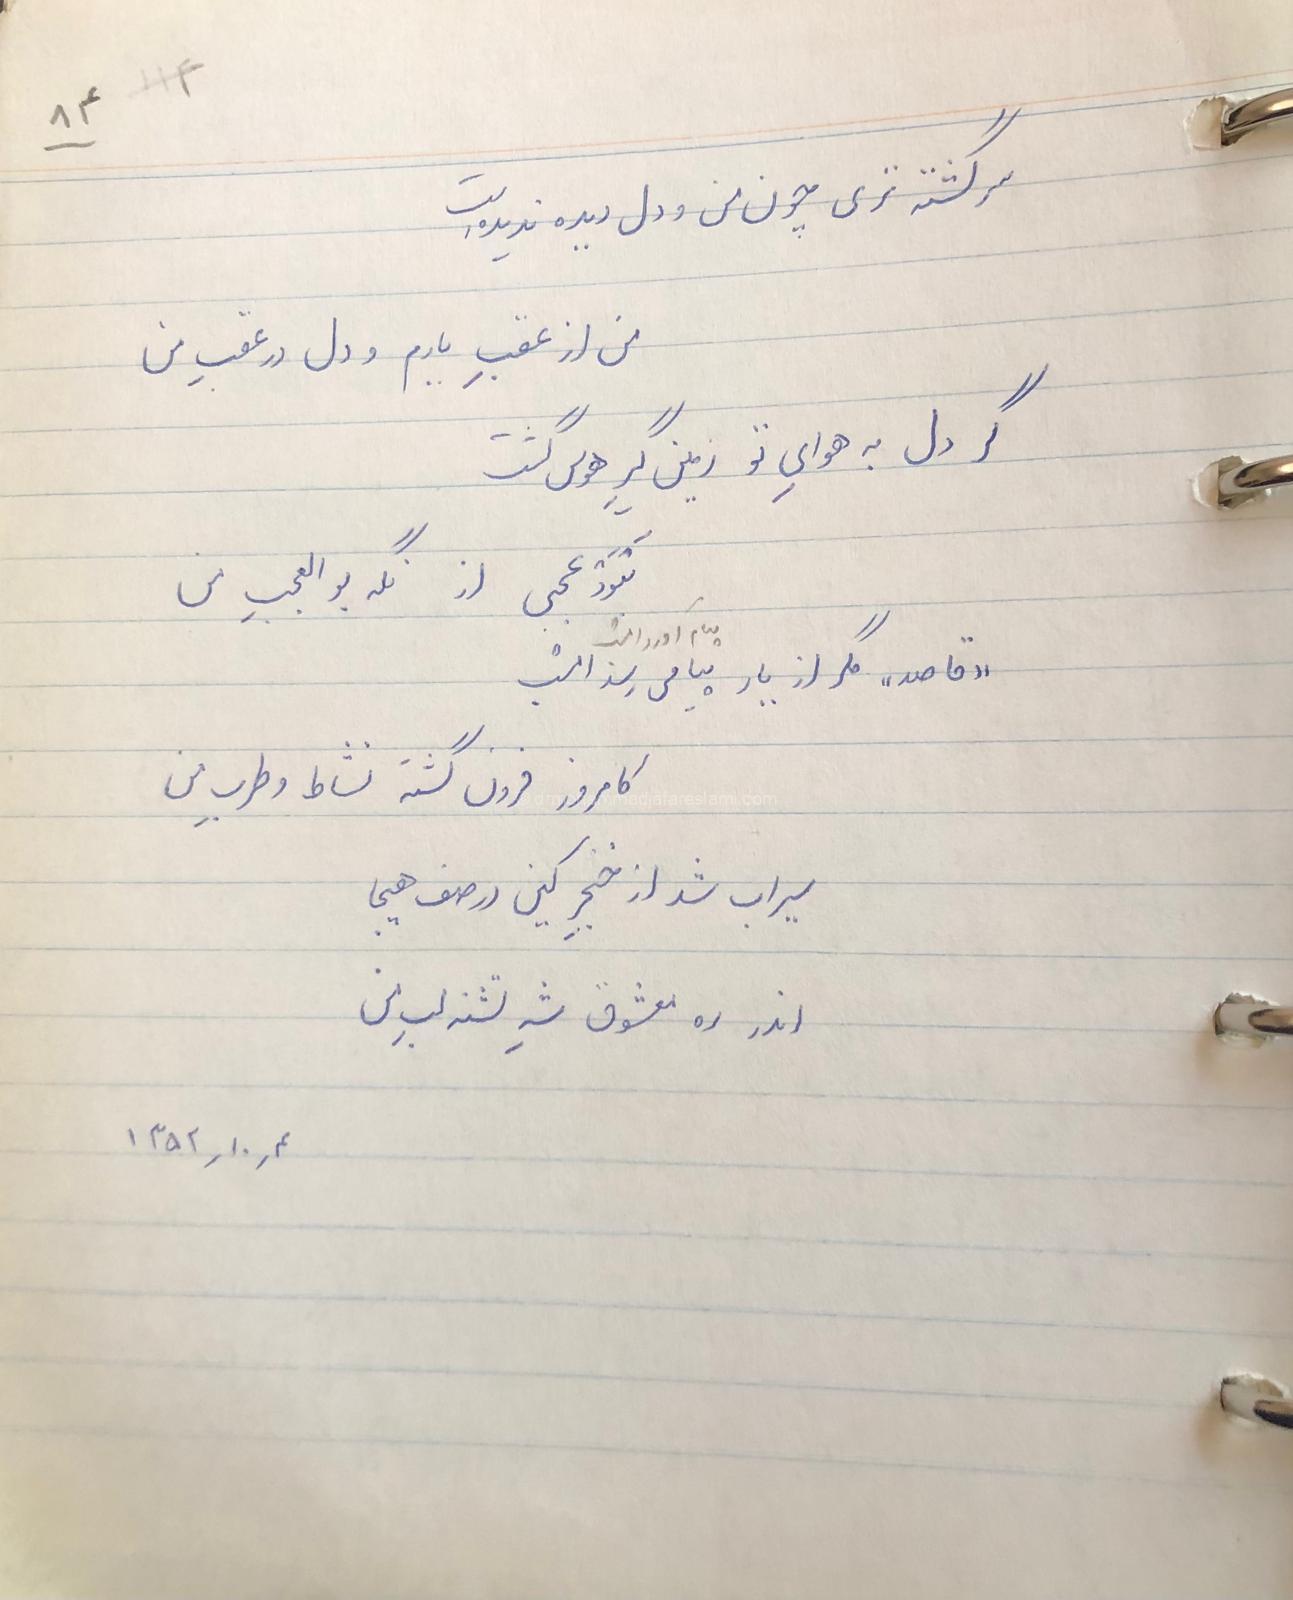 ۸۴ ۱۱۴
سرگشته تری چون من و دل دیده ندیده است
من از عقبِ یارم و دل در عقبِ من
گر دل به هوایِ تو زمین گیرِ هوس گشت
نَبْوَدْ عجبی از نگه بوالعجبِ من
پیام آورد امشب
«قاصد» مگر از یار پیامی رسد امشب
کامروز فزون گشته نشاط و طربِ من
سیراب شد از خنجرِ کین در صف هیجا
اندر ره معشوق شهِ تشنه لبِ من
۴ر۱۰ر۱۳۵۲